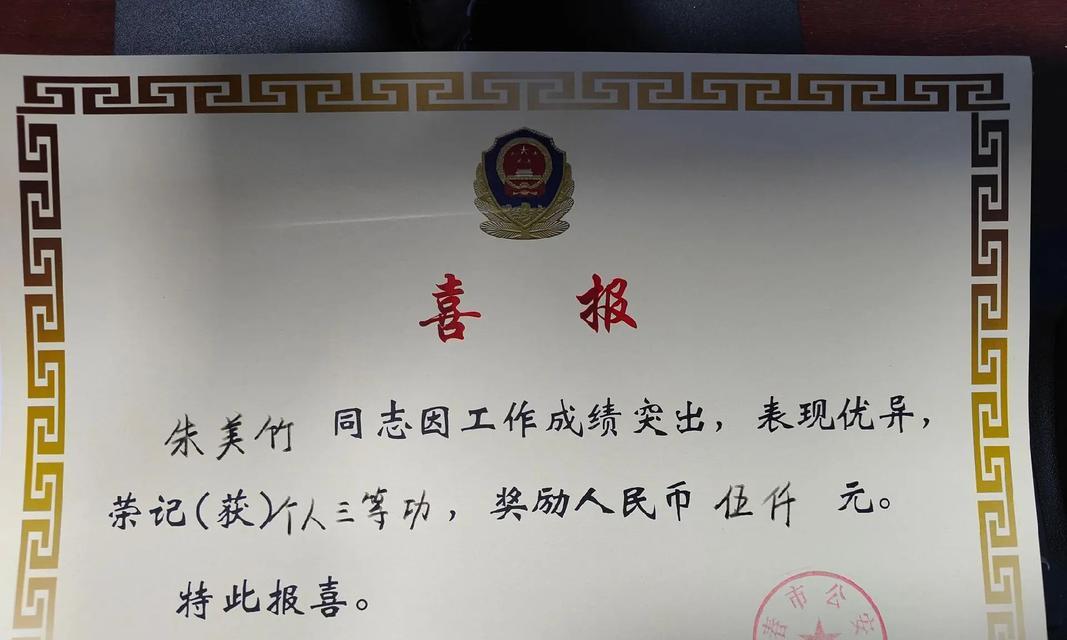 喜报
朱美竹 同志因工作成绩突出，表现优异，
荣记（获）个人三等功，奖励人民币 伍仟 元。
特此报喜。
春市公安